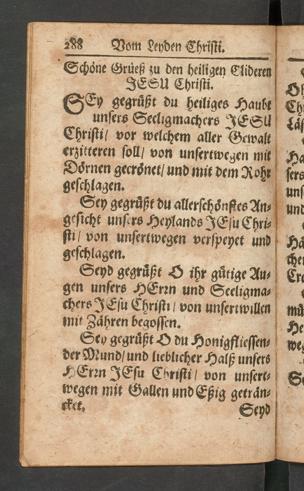 288 Vom Leyden Christi.
Schöne Grüeß zu den heiligen Glideren
JESU Christi.
SEy gegrüßt du heiliges Haubt
unsers Seeligmachers JESU
Christi/ vor welchem aller Gewalt
erzitteren soll/ von unsertwegen mit
Dörnen gecrönet/ und mit dem Rohr
geschlagen.
Sey gegrüßt du allerschönstes An-
gesicht unsers Heylands JEsu Chri-
sti/ von unsertwegen verspeyet und
geschlagen.
Seyd gegrüßt O ihr gütige Au-
gen unsers HErrn und Seeligma-
chers JEsu Christi/ von unsertwillen
mit Zähren begossen.
Sey gegrüßt O du Honigfliessen-
der Mund/ und lieblicher Halß unsers
HErrn JEsu Christi/ von unsert-
wegen mit Gallen und Eßig geträn-
cket.
Seyd